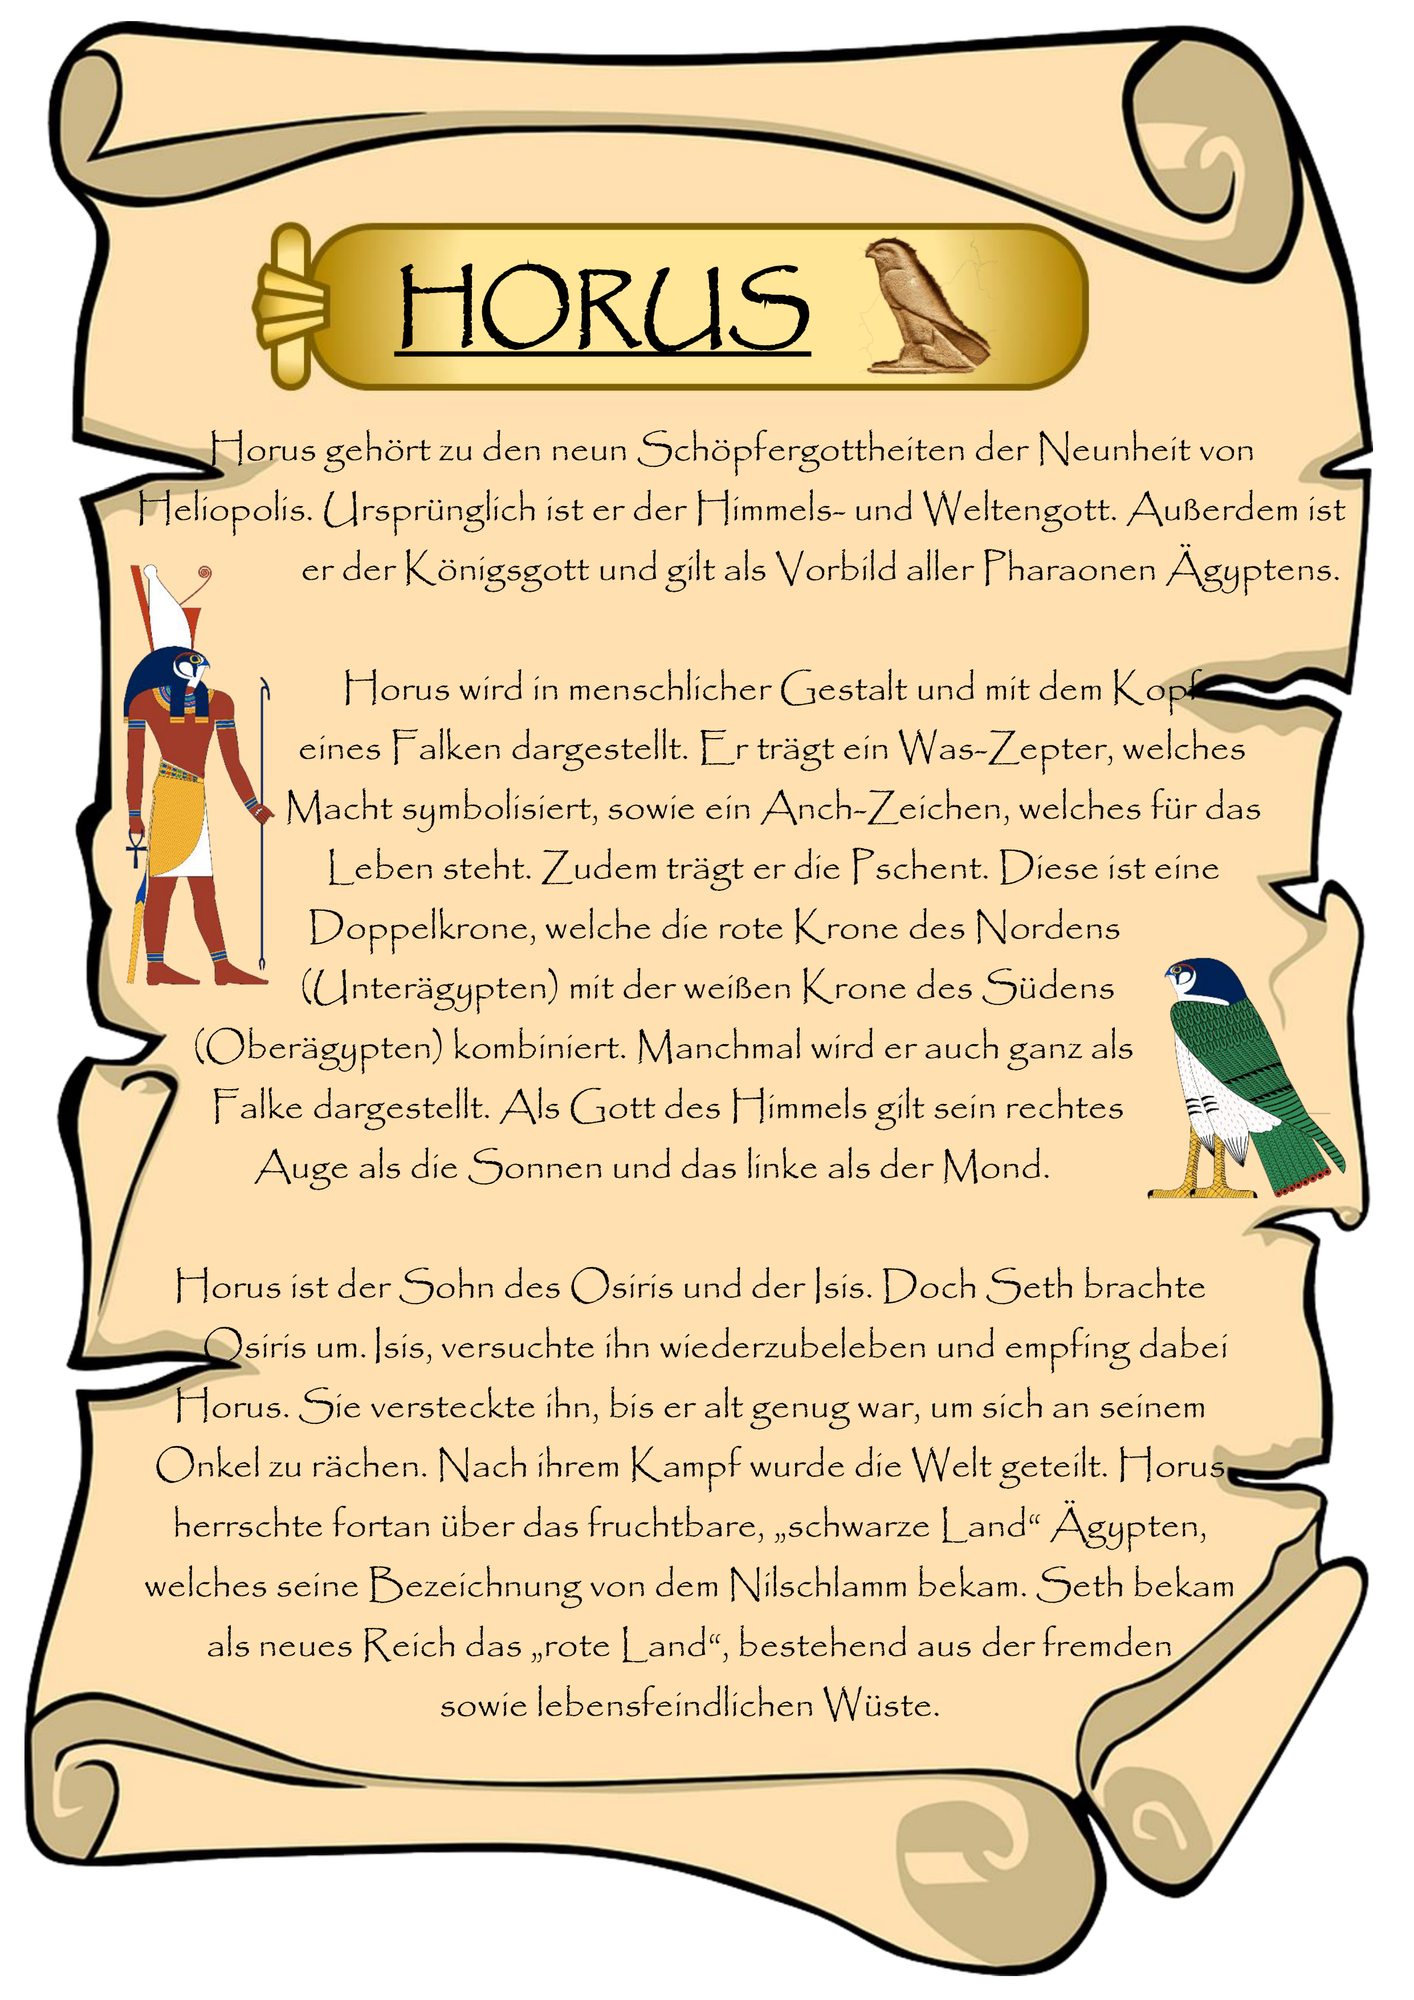 HORUS
Horus gehört zu den neun Schöpfergottheiten der Neunheit von
Heliopolis. Ursprünglich ist er der Himmels- und Weltengott. Außerdem ist
er der Königsgott und gilt als Vorbild aller Pharaonen Ägyptens.
Horus wird in menschlicher Gestalt und mit dem Kopf
eines Falken dargestellt. Er trägt ein Was-Zepter, welches
Macht symbolisiert, sowie ein Anch-Zeichen, welches für das
Leben steht. Zudem trägt er die Pschent. Diese ist eine
Doppelkrone, welche die rote Krone des Nordens
(Unterägypten) mit der weißen Krone des Südens
(Oberägypten) kombiniert. Manchmal wird er auch ganz als
Falke dargestellt. Als Gott des Himmels gilt sein rechtes
Auge als die Sonnen und das linke als der Mond.
Horus ist der Sohn des Osiris und der Isis. Doch Seth brachte
Osiris um. Isis, versuchte ihn wiederzubeleben und empfing dabei
Horus. Sie versteckte ihn, bis er alt genug war, um sich an seinem
Onkel zu rächen. Nach ihrem Kampf wurde die Welt geteilt. Horus
herrschte fortan über das fruchtbare, „schwarze Land“ Ägypten,
welches seine Bezeichnung von dem Nilschlamm bekam. Seth bekam
als neues Reich das „rote Land“, bestehend aus der fremden
sowie lebensfeindlichen Wüste.